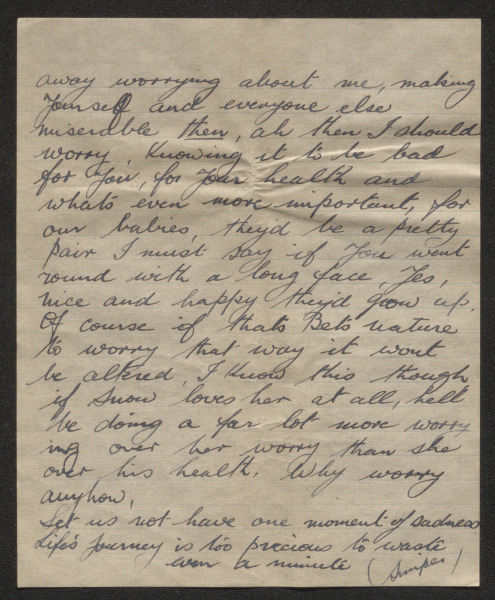 away worrying about me, making
Yourself and everyone else
miserable then, ah then I should
worry, Knowing it to be bad
for You, for Your health and
whats even more important, for
our babies, they'd be a pretty
pair I must say if You went
round with a long face. Yes,
nice and happy they'd grow up.
Of course if thats Bets nature
to worry that way it wont
be altered, I Know this though
if Snow loves her at all, he'll
be doing a far lot more worry
ing over her worry than she
over his health. Why worry
anyhow,
Let us not have one moment of sadness
Life's Journey is too precious to waste
even a minute (Snipes)